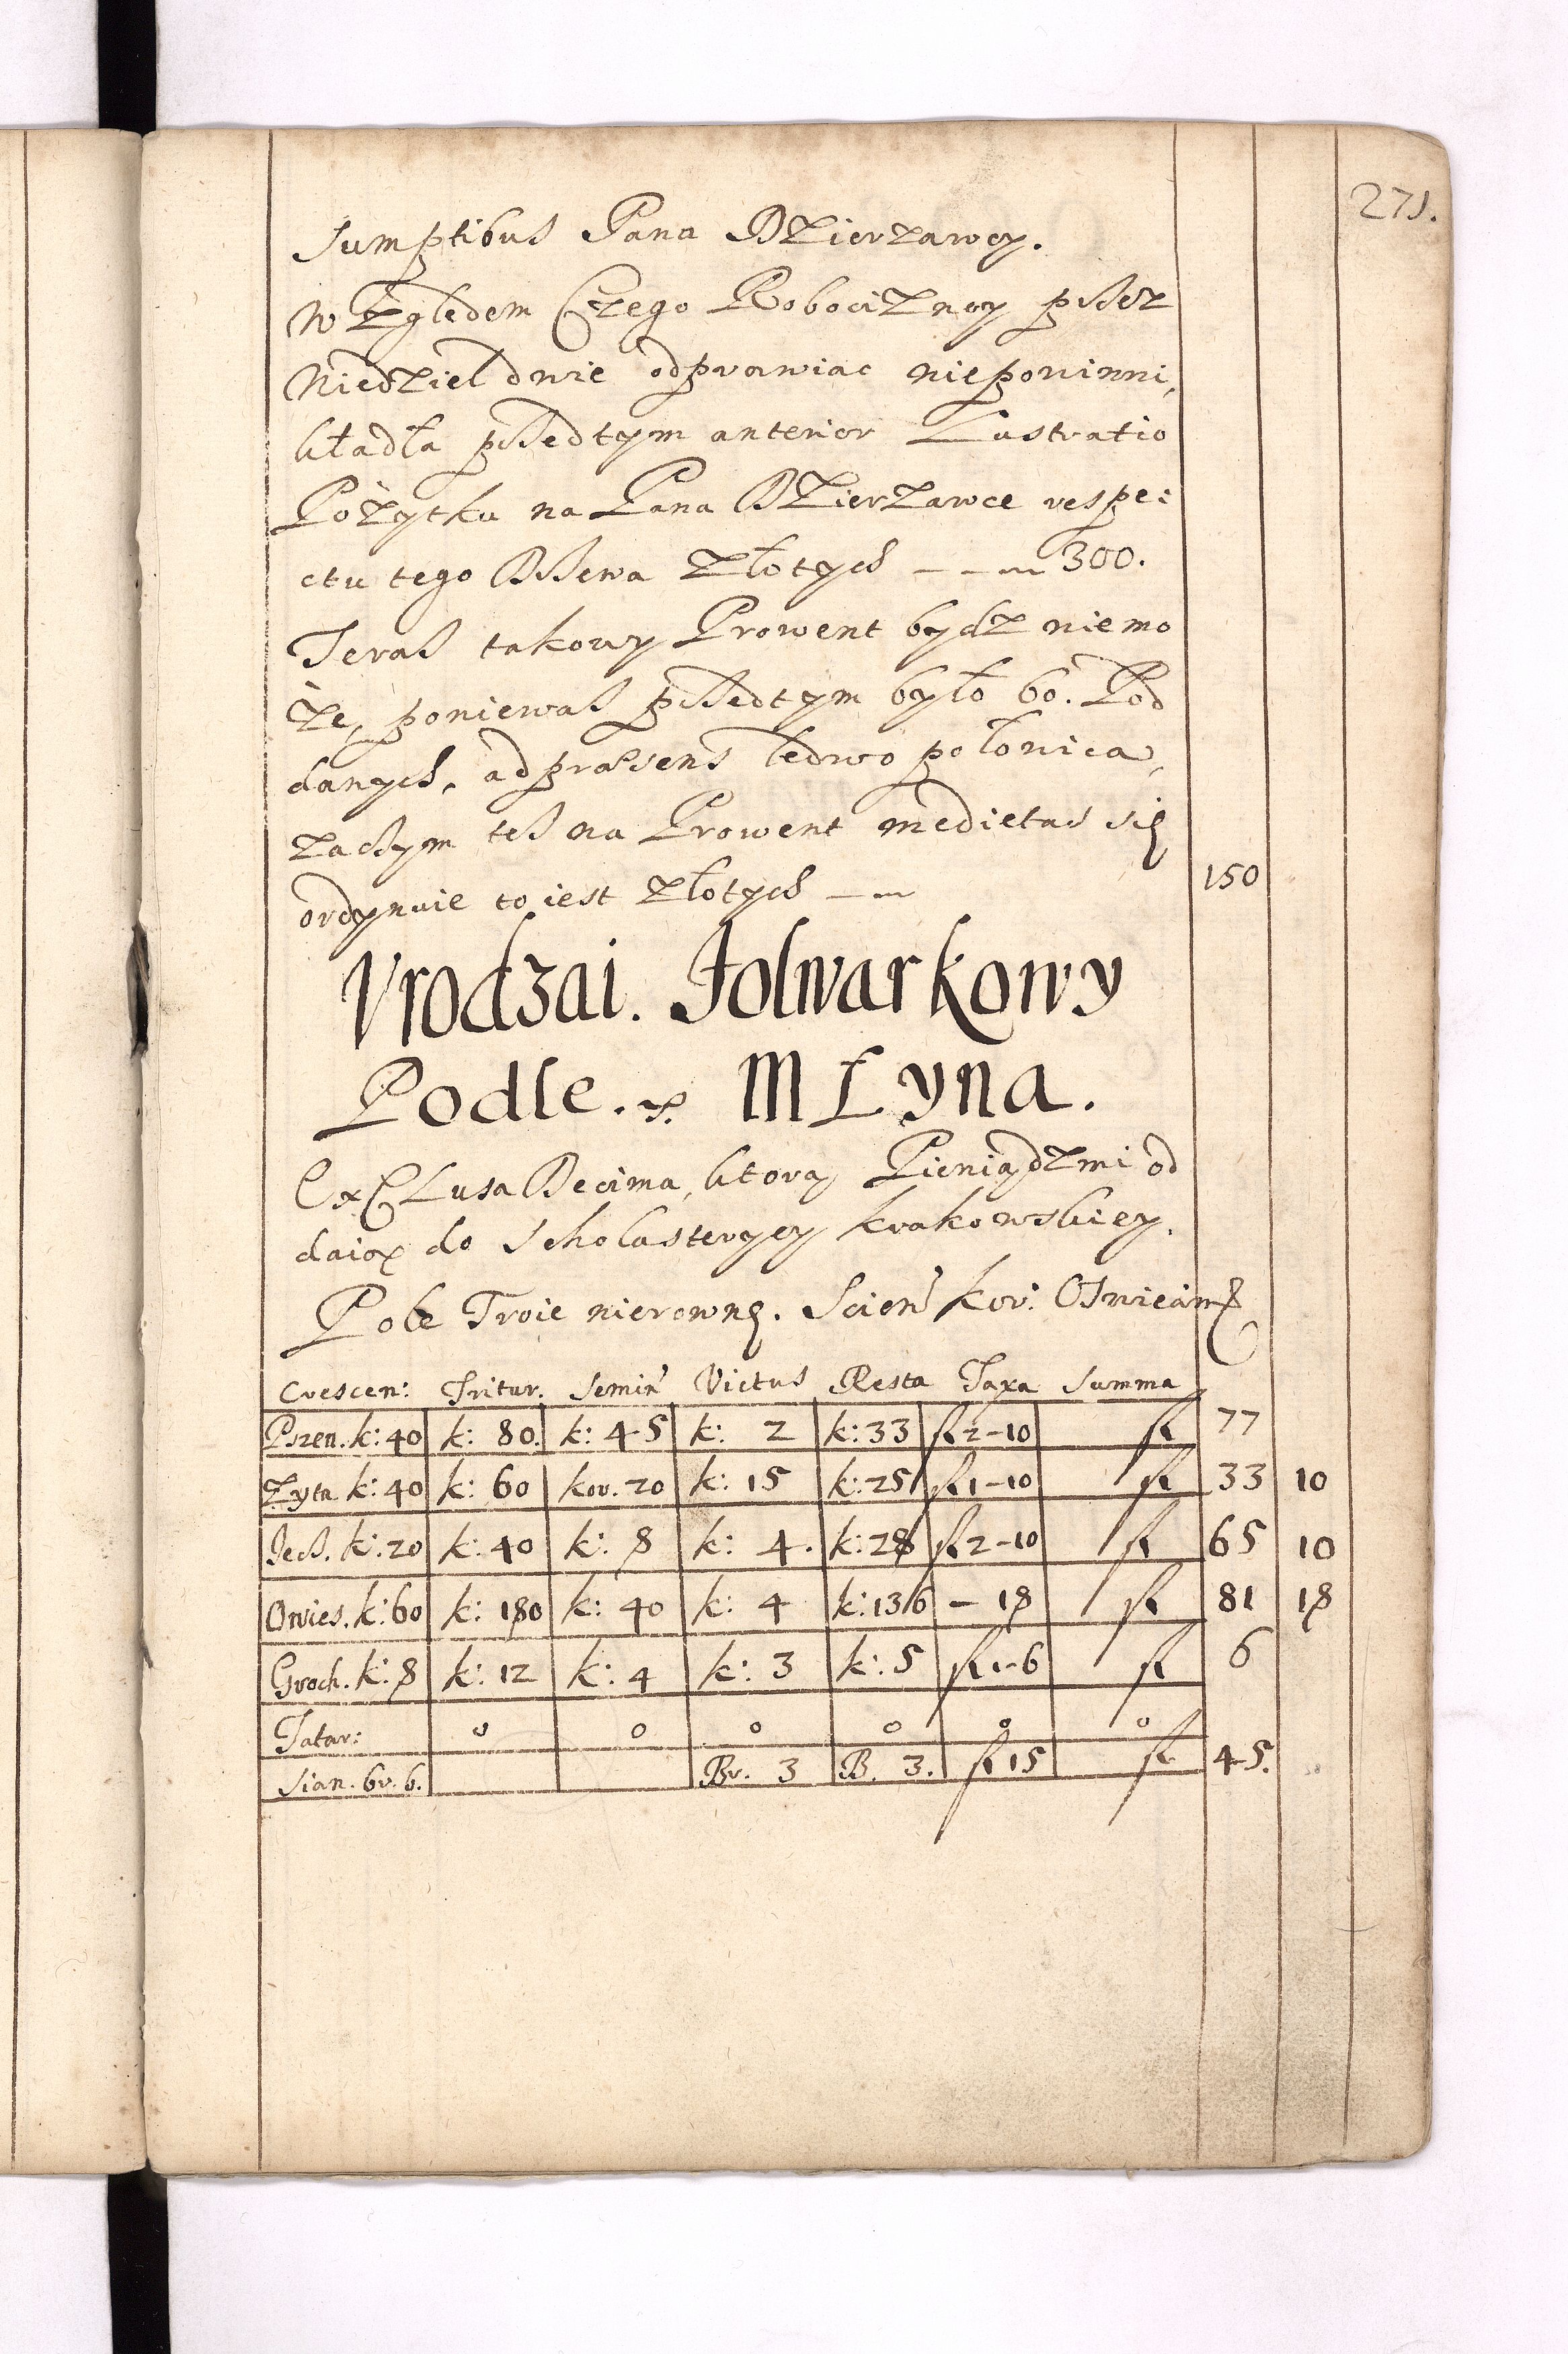 271.
sumptibus Pana Dzierzawcy.
Względem Czego Robocizney przez
Niedziel dwie odprawiac niepowinni,
kładła przedtym anterior Lustratio
Pożytku na Pana Dzierzawce respe:
ctu tego Drzewa złotych — — 300.
Teras takowy Prowent bydz niemo
że, poniewas przedtym było 60. Pod
danych, ad præsens ledwo połowica,
zaczym tes na Prowent medietas się
ordynuie to iest złotych — 150
Vrodzai. Folwarkowy
Podle. MŁyna.
ExCLusa Decima, ktorą Pieniądzmi od
daią do Scholasteryey krakowskiey.
Pole Troie nierownę. Scien kor: Oswiecim
Crescen: Tritur. Semin Victus Resta Taxa Summa
Pszen. k: 40 k: 80. k: 45 k: 2 k: 33 fl 2-10 fl 77
Zyta. k: 40 k: 60 kor. 20 k: 15 k: 25 fl 1-10 fl 33 10
Jecz. k: 20 k: 40 k: 8 k: 4. k: 28 fl 2-10 fl 65 10
Owies. k: 60 k: 180 k: 40 k: 4 k: 136 - 18 fl 81 18
Groch. k: 8 k: 12 k: 4 k: 3 k: 5 fl 1-6 fl 6
Tatar: 0 0 0 0 0 0
Sian. br. 6. Br. 3 B. 3. fl 15 fl 45.